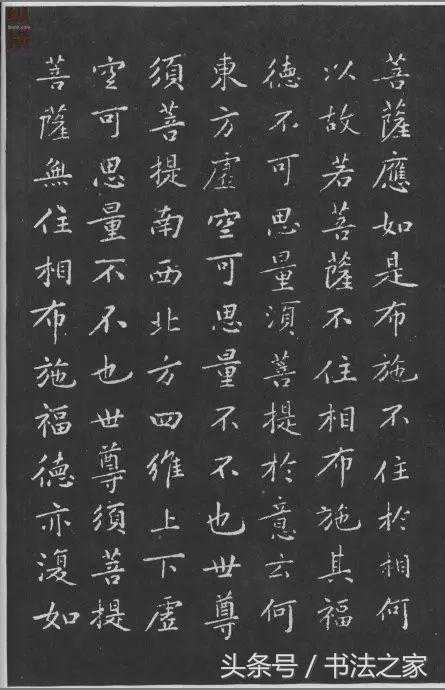 菩薩應如是布施不住於相何
以故若菩薩不住相布施其福
德不可思量須菩提於意云何
東方虛空可思量不不也世尊
須菩提南西北方四維上下虛
空可思量不不也世尊須菩提
菩薩無住相布施福德亦復如
头条号 / 书法之家